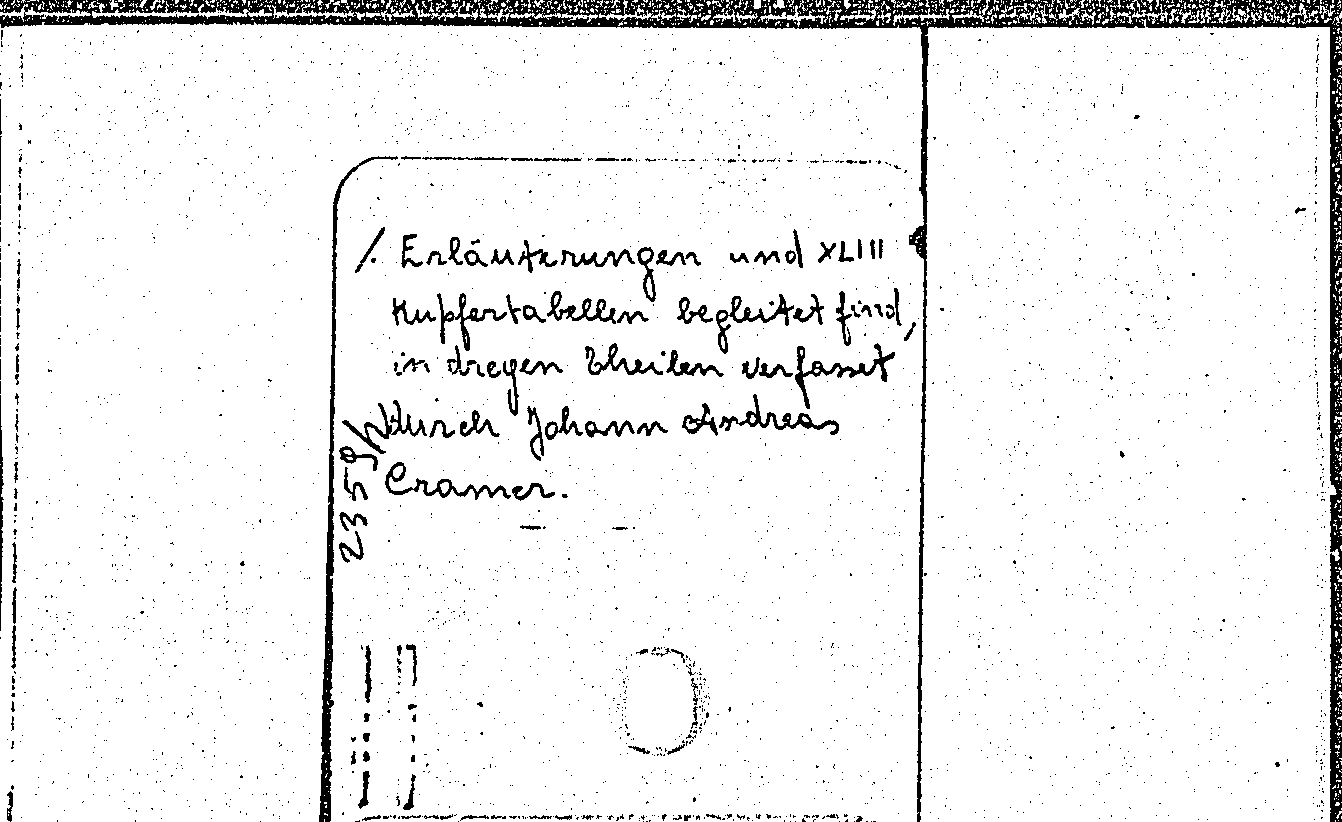 /. Erläuterungen und XLIII
Kupfertabellen begleitet find,
in dreyen Theilen verfasset
durch Johann Andreas
Cramer.
2359/